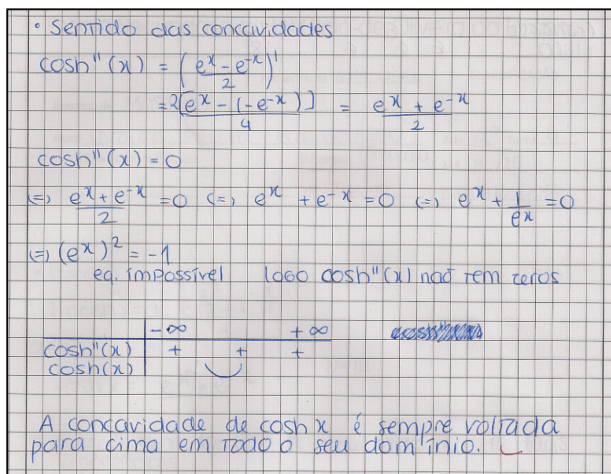 • Sentido das concavidades
cosh''(x) = ((e^x - e^-x)/2)'
= 2[e^x - (-e^-x)]/4 = (e^x + e^-x)/2
cosh''(x) = 0
(=) (e^x + e^-x)/2 = 0 (=) e^x + e^-x = 0 (=) e^x + 1/e^x = 0
(=) (e^x)^2 = -1
eq. impossível logo cosh''(x) não tem zeros
-∞ +∞
cosh''(x) + + +
cosh(x)
A concavidade de cosh x é sempre voltada
para cima em todo o seu domínio.